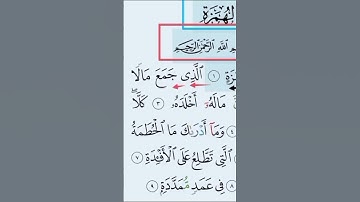 لهُمَزَة
مِ اللَّهِ الرَّحْمَٰنِ الرَّحِيمِ
زَةٍ ١ الَّذِي جَمَعَ مَالًا
مَالَهُۥ أَخْلَدَهُۥ ٣ كَلَّاۖ
٤ وَمَآ أَدْرَىٰكَ مَا الْحُطَمَةُ
الَّتِي تَطَّلِعُ عَلَى الْأَفْـِٔدَةِ ٧
٨ فِي عَمَدٍ مُّمَدَّدَةٍ ٩